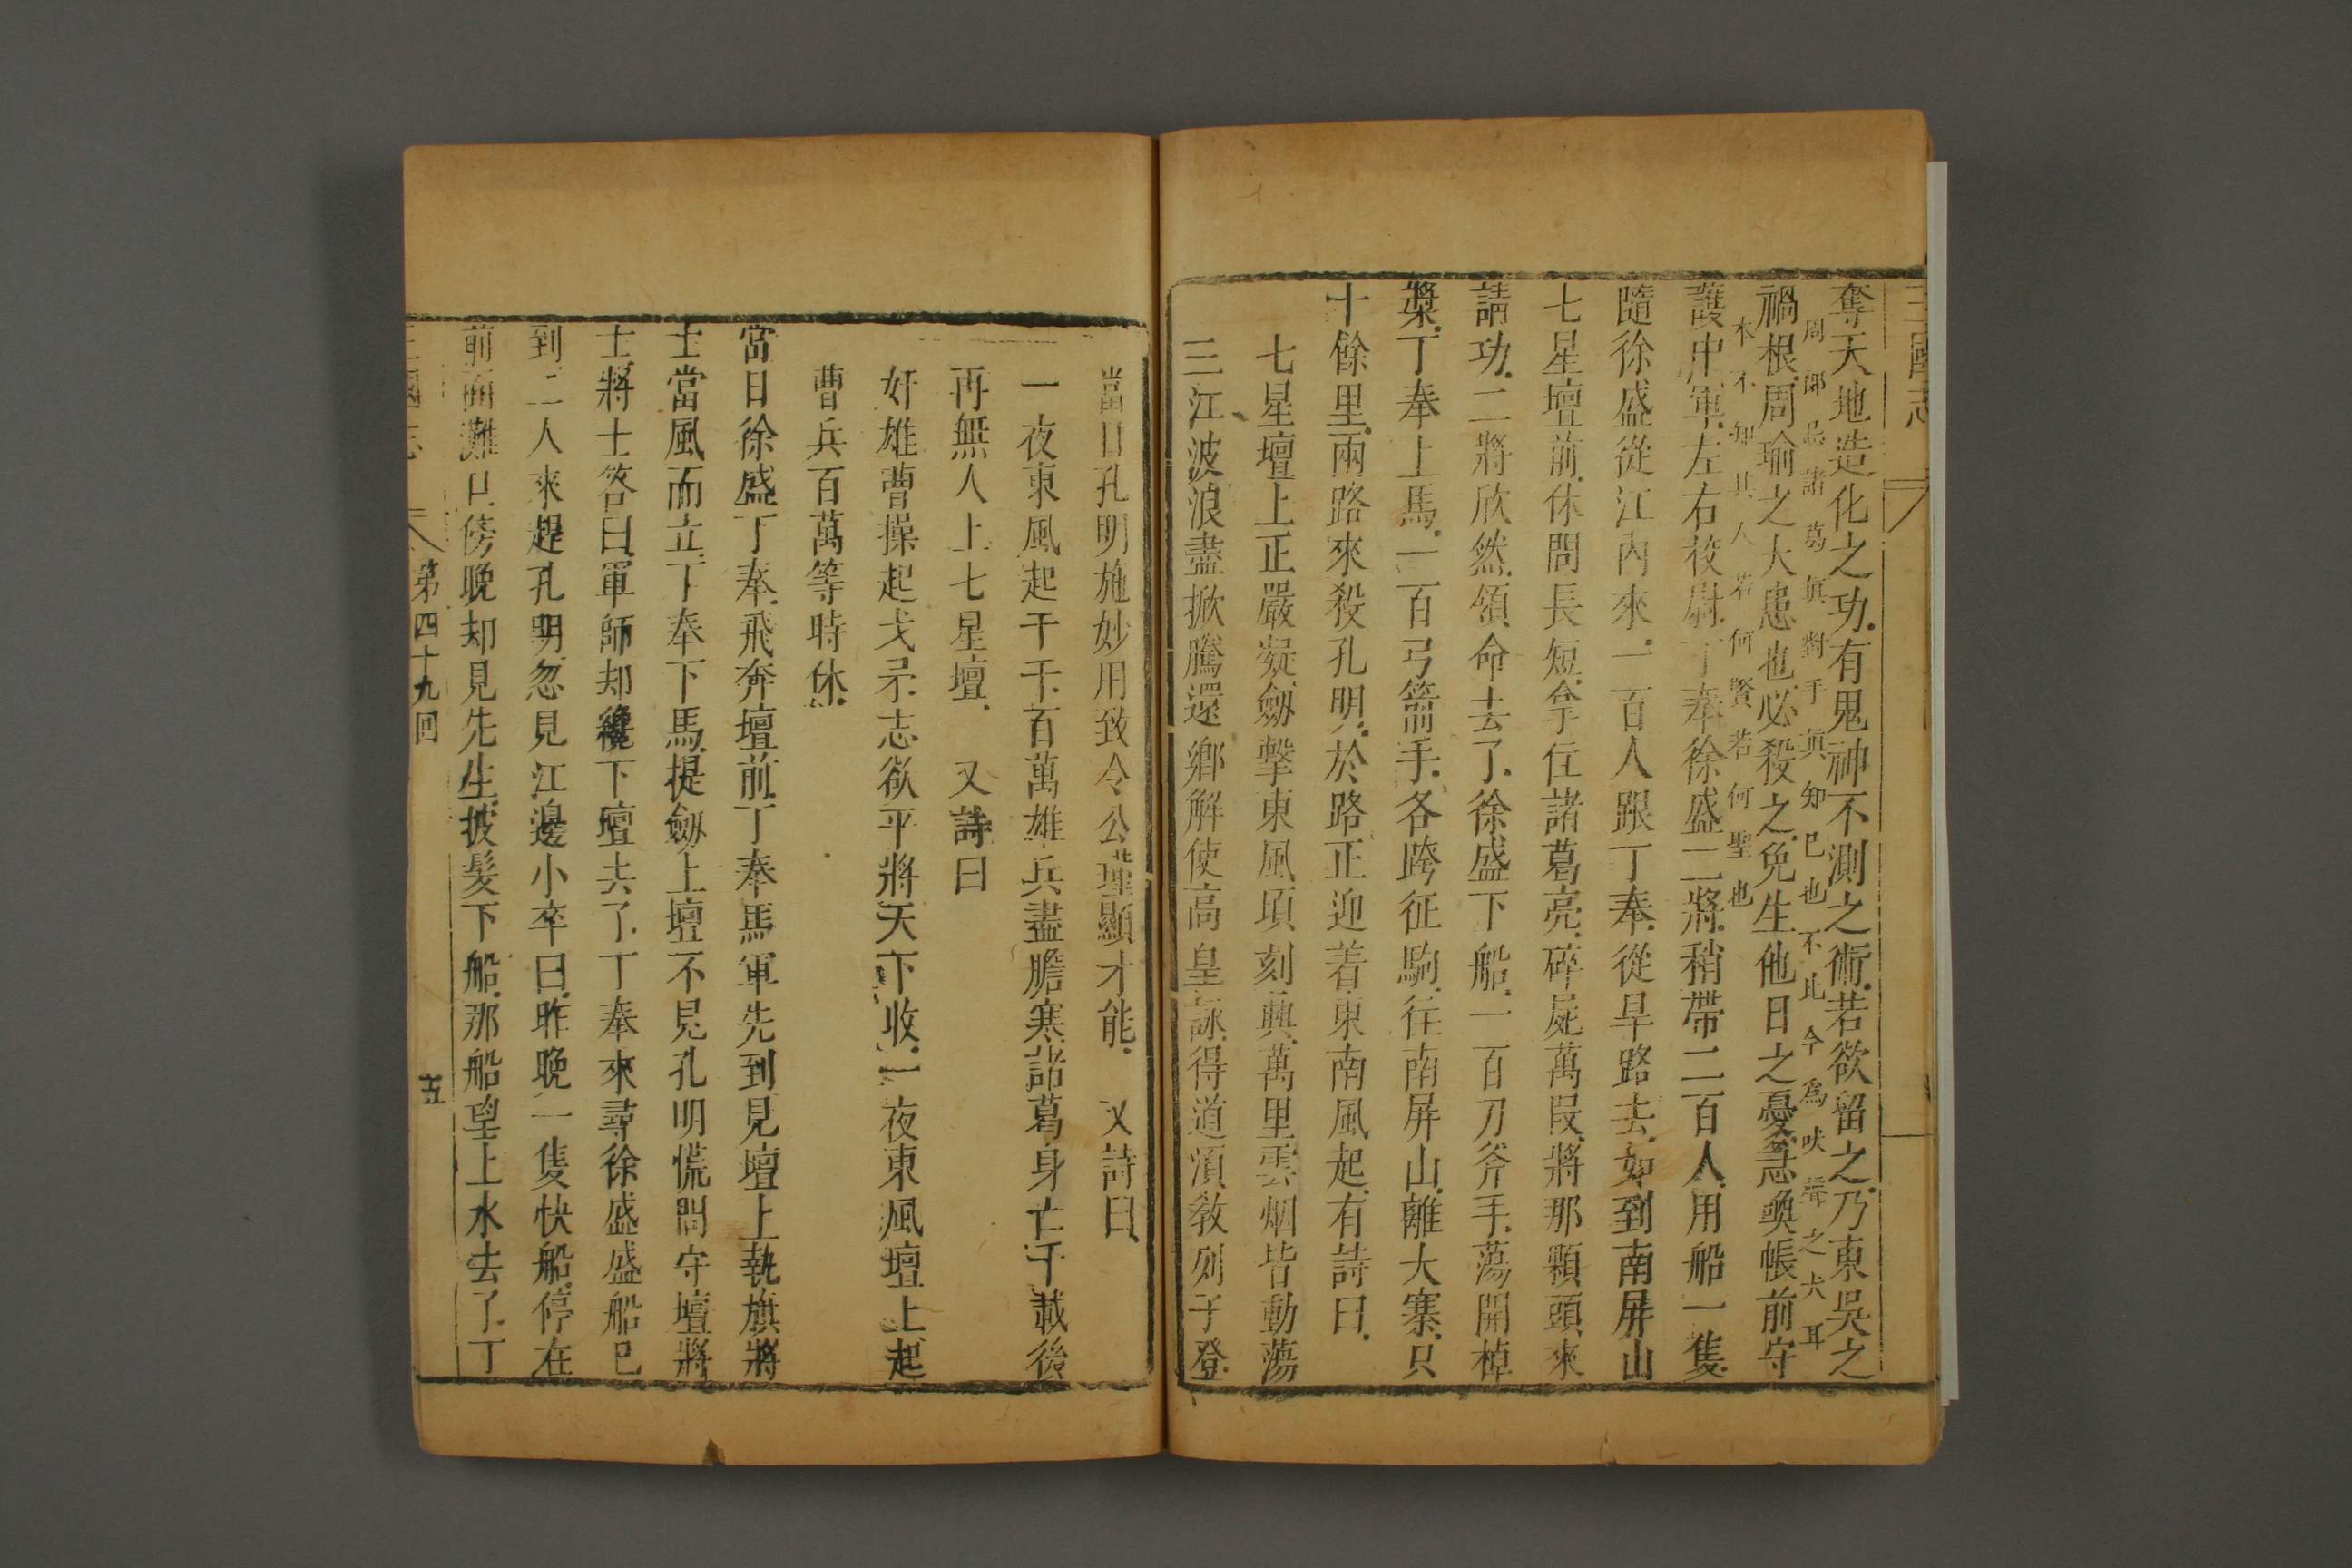 三國志
奪天地造化之功有鬼神不測之術若欲留之乃東吳之
周郎是諸葛眞對手眞知已也不比今爲吠聲之犬耳
禍根周瑜之大患也必殺之免生他日之憂急喚帳前守
本不知其人若何賢若何聖也
護中軍左右校尉丁奉徐盛二將稍帶二百人用船一隻
隨徐盛從江內來一百人跟丁奉從旱路去如到南屏山
七星壇前休問長短拿住諸葛亮碎屍萬段將那顆頭來
請功二將欣然領命去了徐盛下船一百刀斧手蕩開棹
槳丁奉上馬一百弓箭手各跨征駒往南屏山離大寨只
十餘里兩路來殺孔明於路正迎着東南風起有詩曰
七星壇上正嚴凝劔擊東風頃刻興萬里雲烟皆動蕩
三江波浪盡掀騰還鄉解使高皇詠得道湏敎列子登
當日孔明施妙用致令公瑾顯才能 又詩曰
一夜東風起干干百萬雄兵盡膽寒諸葛身亡千載後
再無人上七星壇 又詩曰
奸雄曹操起戈矛志欲平將天下收一夜東風壇上起
曹兵百萬等時休
當日徐盛丁奉飛奔壇前丁奉馬軍先到見壇上執旗將
士當風而立丁奉下馬提劔上壇不見孔明慌問守壇將
士將士答曰軍師却纔下壇去了丁奉來尋徐盛盛船已
到二人來趕孔明忽見江邊小卒曰昨晚一隻快船停在
前面灘口傍晚却見先生披髮下船那船望上水去了丁
三國志 第四十九回 五